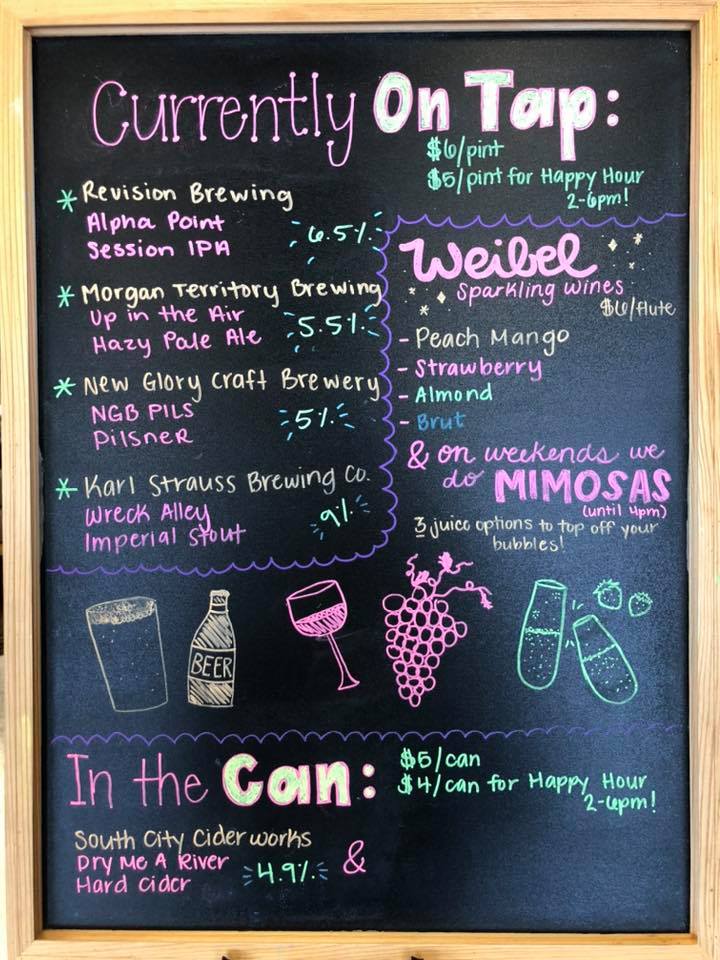 Currently On Tap:
$6/pint
$5/pint for Happy Hour
2-6pm!
* Revision Brewing
Alpha Point
Session IPA
6.5%
* Morgan Territory Brewing
Up in the Air
Hazy Pale Ale
5.5%
* New Glory Craft Brewery
NGB PILS
Pilsner
5%
* Karl Strauss Brewing Co.
Wreck Alley
Imperial Stout
9%
Weibel
Sparkling Wines
$6/flute
- Peach Mango
- Strawberry
- Almond
- Brut
& on weekends we
do MIMOSAS
(until 4pm)
3 juice options to top off your
bubbles!
BEER
In the Can:
$5/can
$4/can for Happy Hour
2-6pm!
South City Ciderworks
Dry Me A River
Hard Cider
4.9%
&